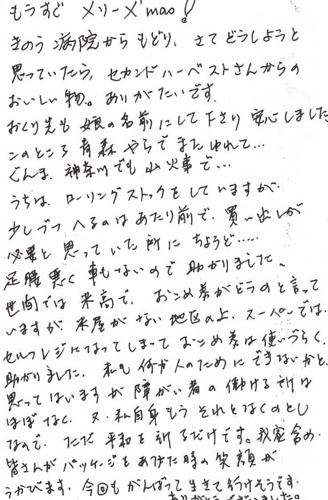 もうすぐ メリーX'mas!
きのう病院からもどり、さてどうしようと
思っていたら、セカンドハーベストさんからの
おいしい物。ありがたいです。
おくり先も 娘の名前にして下さり 安心しました
このところ 青森やらでまたゆれて…
ぐんま、神奈川でも 山火事で…
うちは、ローリングストックをしていますが
少しづつ へるのはあたり前で、買い出しが
必要と思っていた所に ちょうど…..
足腰悪く 車もないので 助かりました。
世間では 米高で、おこめ券がどうのと言って
いますが 米屋がない地区の上、スーパーでは
セルフレジになってしまって おこめ券は使いづらく、
助かりました。私も 何か人のために できないかと、
思ってはいますが 障がい者の 働ける所は
ほぼなく、又、私自身 もう それとなくのとし
なので、ただ 平和を祈るだけです。我家含め
皆さんが パッケージをあけた時の 笑顔が
うかびます。今回も がんばって生きて行けそうです。
ありがとうございました。